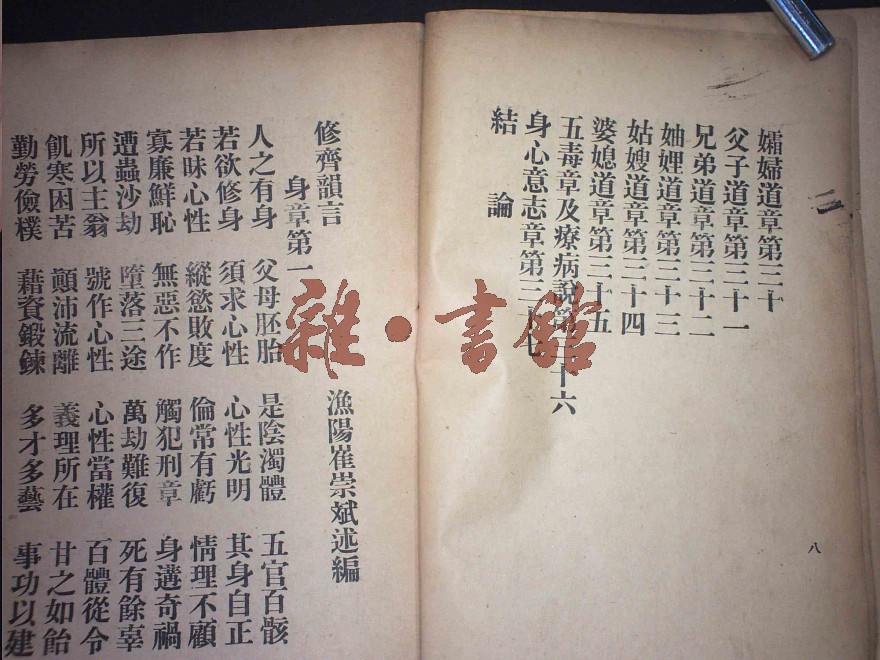 孀婦道章第三十
父子道章第三十一
兄弟道章第三十二
妯娌道章第三十三
姑嫂道章第三十四
婆媳道章第三十五
五毒章及療病說第三十六
身心意志章第三十七
結論
八
修齊韻言
漁陽崔崇斌述編
身章第一
人之有身 父母胚胎 是陰濁體 五官百骸
若欲修身 須求心性 心性光明 其身自正
若昧心性 縱慾敗度 倫常有虧 情理不顧
寡廉鮮恥 無惡不作 觸犯刑章 身遘奇禍
遭蟲沙劫 墮落三途 萬劫難復 死有餘辜
所以主翁 號作心性 心性當權 百體從令
飢寒困苦 顛沛流離 義理所在 甘之如飴
勤勞儉樸 藉資鍛鍊 多才多藝 事功以建
雜·書館